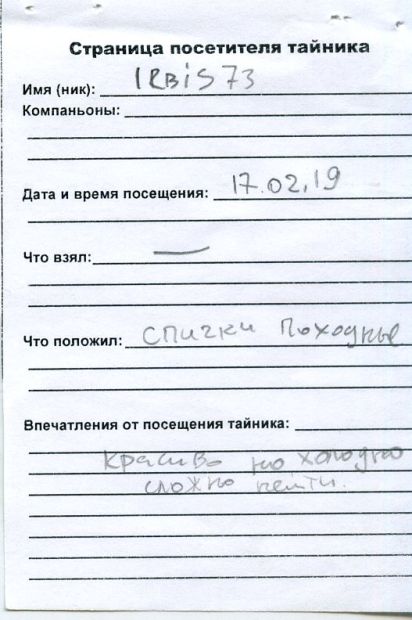 Страница посетителя тайника
Имя (ник): IRBIS 73
Компаньоны:
Дата и время посещения: 17.02.19
Что взял: —
Что положил: спички походные
Впечатления от посещения тайника:
красиво но холодно
сложно найти.